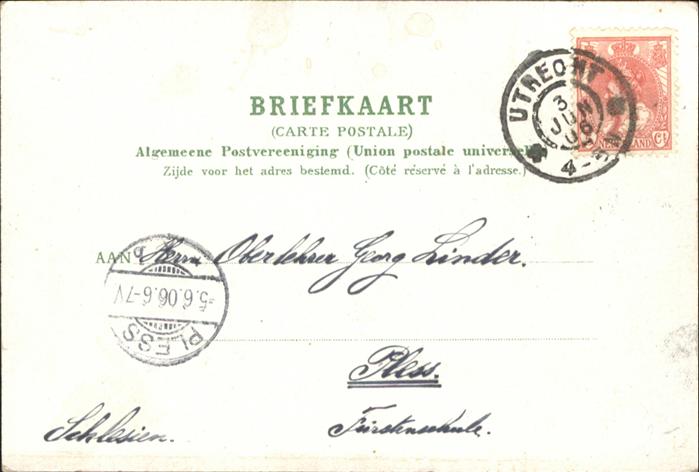 BRIEFKAART
(CARTE POSTALE)
Algemeene Postvereeniging (Union postale universelle)
Zijde voor het adres bestemd. (Côté réservé à l'adresse.)
UTRECHT
3
JUN
06
4-
Ct
NEDERLAND
AAN Herrn Oberlehrer Georg Linder.
5.6.06.6-7V
PLESS
Pless.
Schlesien. Fürstenschule.